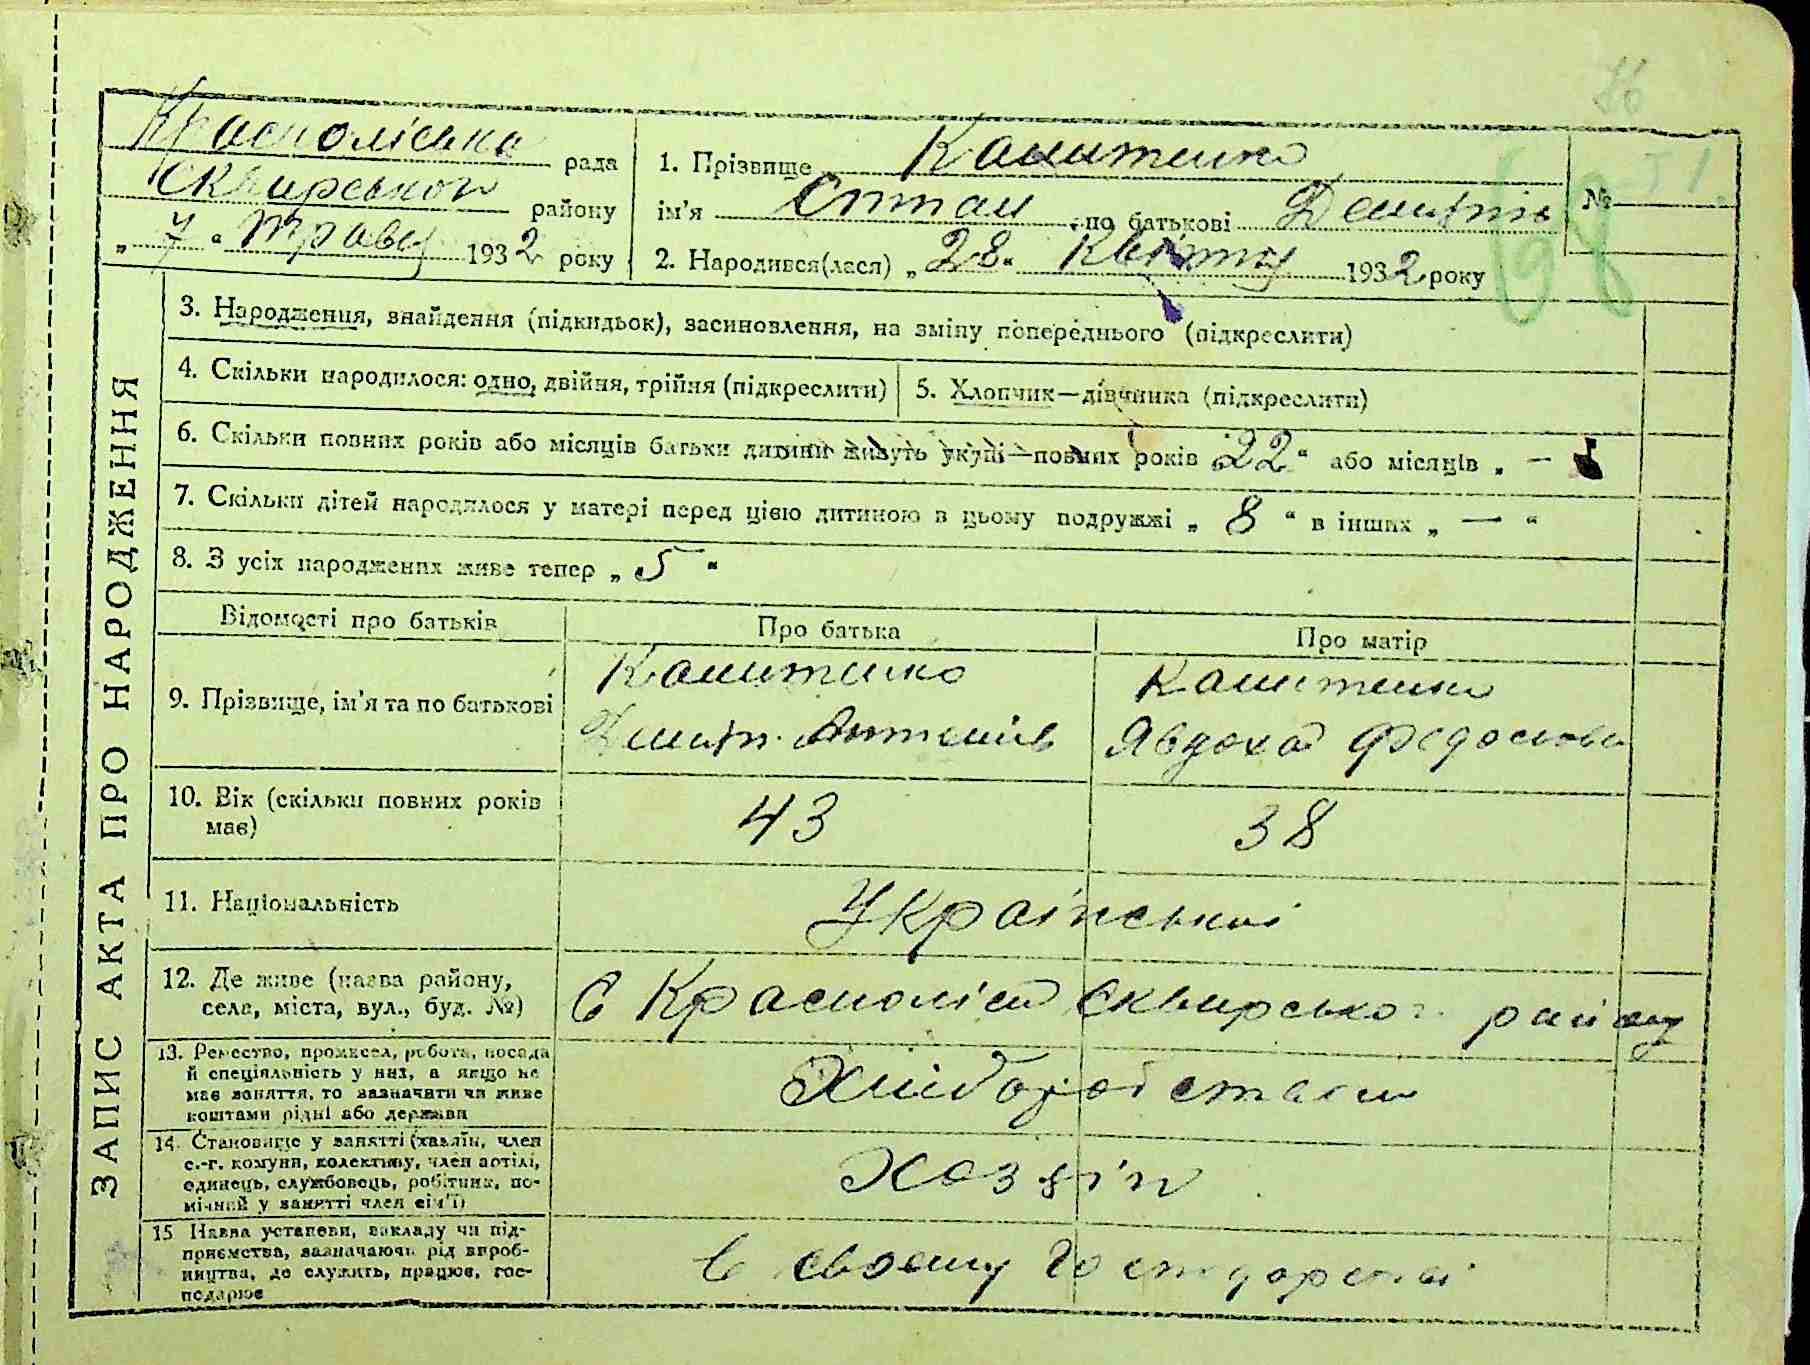 76
Красноліська рада
Сквирського району
„ 7 “ Травня 1932 року
1. Прізвище
ім'я Степан по батькові Дмитрів
№
98
2. Народився(лася) „28“ Квітня 1932 року
ЗАПИС АКТА ПРО НАРОДЖЕННЯ
3. Народження, знайдення (підкидьок), засиновлення, на зміну попереднього (підкреслити)
4. Скільки народилося: одно, двійня, трійня (підкреслити)
5. Хлопчик—дівчинка (підкреслити)
6. Скільки повних років або місяців батьки дитини живуть укупі—повних років „22“ або місяців „ —
7. Скільки дітей народилося у матері перед цією дитиною в цьому подружжі „ 8 “ в інших „ — “
8. З усіх народжених живе тепер „ 5 “
Відомості про батьків
Про батька
Про матір
9. Прізвище, ім'я та по батькові
Явдоха
10. Вік (скільки повних років
має)
43
38
11. Національність
Українські
12. Де живе (назва району,
села, міста, вул., буд. №)
С Красноліси Сквирського району
13. Ремество, промисел, робота, посада
й спеціяльність у них, а якщо не
має заняття, то зазначити чи живе
коштами рідні або держави
14. Становище у занятті (хазяїн, член
с.-г. комуни, колективу, член артілі,
одинець, службовець, робітник, по-
мічний у занятті член сім'ї)
Хозяін
15 Назва установи, закладу чи під-
приємства, зазначаючи рід вироб-
ництва, де служить, працює, гос-
подарює
в своєму господарстві